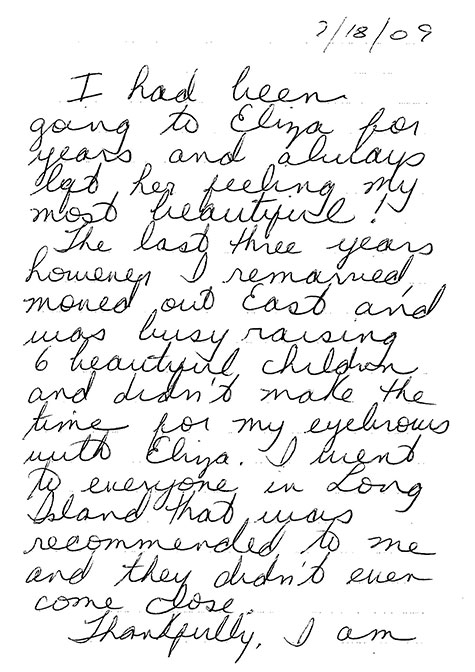 7/18/09
I had been
going to Eliza for
years and always
left her feeling my
most beautiful!
The last three years
however I remarried,
moved out East and
was busy raising
6 beautiful children
and didn't make the
time for my eyebrows
with Eliza. I went
to everyone in Long
Island that was
recommended to me
and they didn't even
come close.
Thankfully, I am